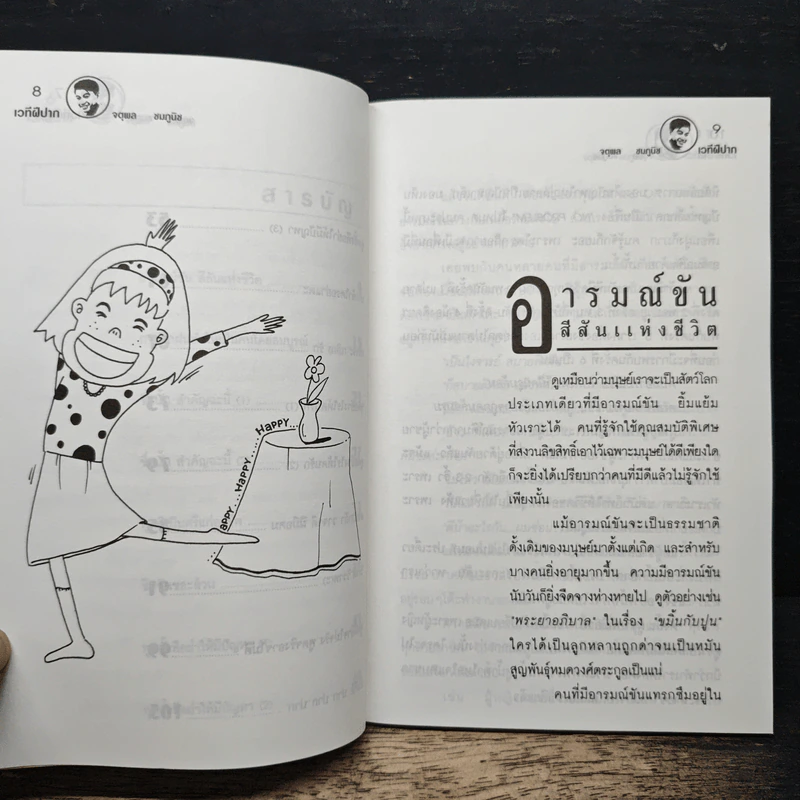 8
เวทีฝีปาก จตุพล ชมภูนิช
HAPPY...
HAPPY...
APPY...
๙
จตุพล ชมภูนิช เวทีฝีปาก
อารมณ์ขัน
สีสันแห่งชีวิต
ดูเหมือนว่ามนุษย์เราจะเป็นสัตว์โลก
ประเภทเดียวที่มีอารมณ์ขัน ยิ้มแย้ม
หัวเราะได้ คนที่รู้จักใช้คุณสมบัติพิเศษ
ที่สงวนลิขสิทธิ์เอาไว้เฉพาะมนุษย์ได้ดีเพียงใด
ก็จะยิ่งได้เปรียบกว่าคนที่มีดีแล้วไม่รู้จักใช้
เพียงนั้น
แม้อารมณ์ขันจะเป็นธรรมชาติ
ดั้งเดิมของมนุษย์มาตั้งแต่เกิด และสำหรับ
บางคนยิ่งอายุมากขึ้น ความมีอารมณ์ขัน
นับวันก็ยิ่งจืดจางห่างหายไป ดูตัวอย่างเช่น
"พระยาอภิบาล" ในเรื่อง "ขมิ้นกับปูน"
ใครได้เป็นลูกหลานถูกด่าจนเป็นหมัน
สูญพันธุ์หมดวงศ์ตระกูลเป็นแน่
คนที่มีอารมณ์ขันแทรกซึมอยู่ใน